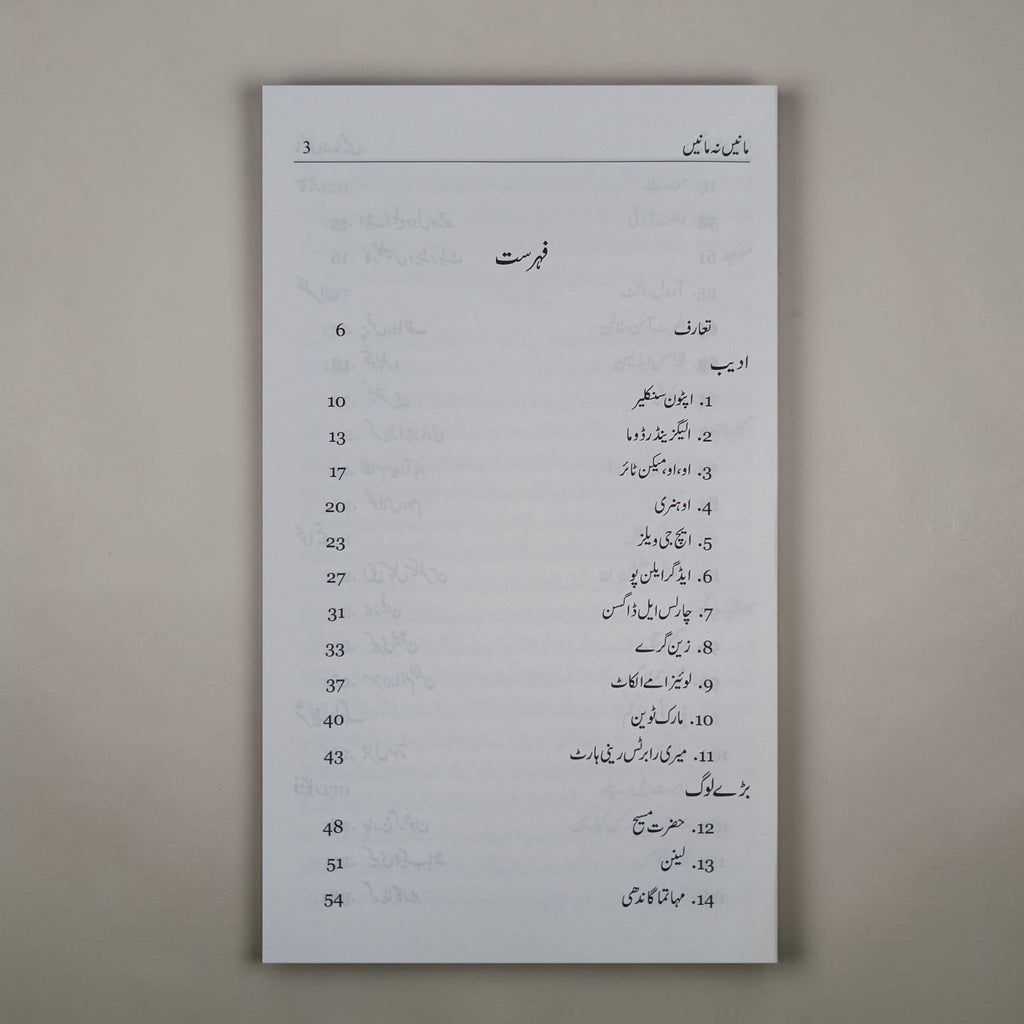 مانیں نہ مانیں 3
فہرست
تعارف 6
ادیب
1. اپٹون سنکلیر 10
2. الیگزینڈر ڈوما 13
3. او، او، میکن ٹائر 17
4. او ہنری 20
5. ایچ جی ویلز 23
6. ایڈگر ایلن پو 27
7. چارلس ایل ڈاگسن 31
8. زین گرے 33
9. لوئیزا مے الکاٹ 37
10. مارک ٹوین 40
11. میری رابرٹس رینی ہارٹ 43
بڑے لوگ
12. حضرت مسیح 48
13. لینن 51
14. مہاتما گاندھی 54